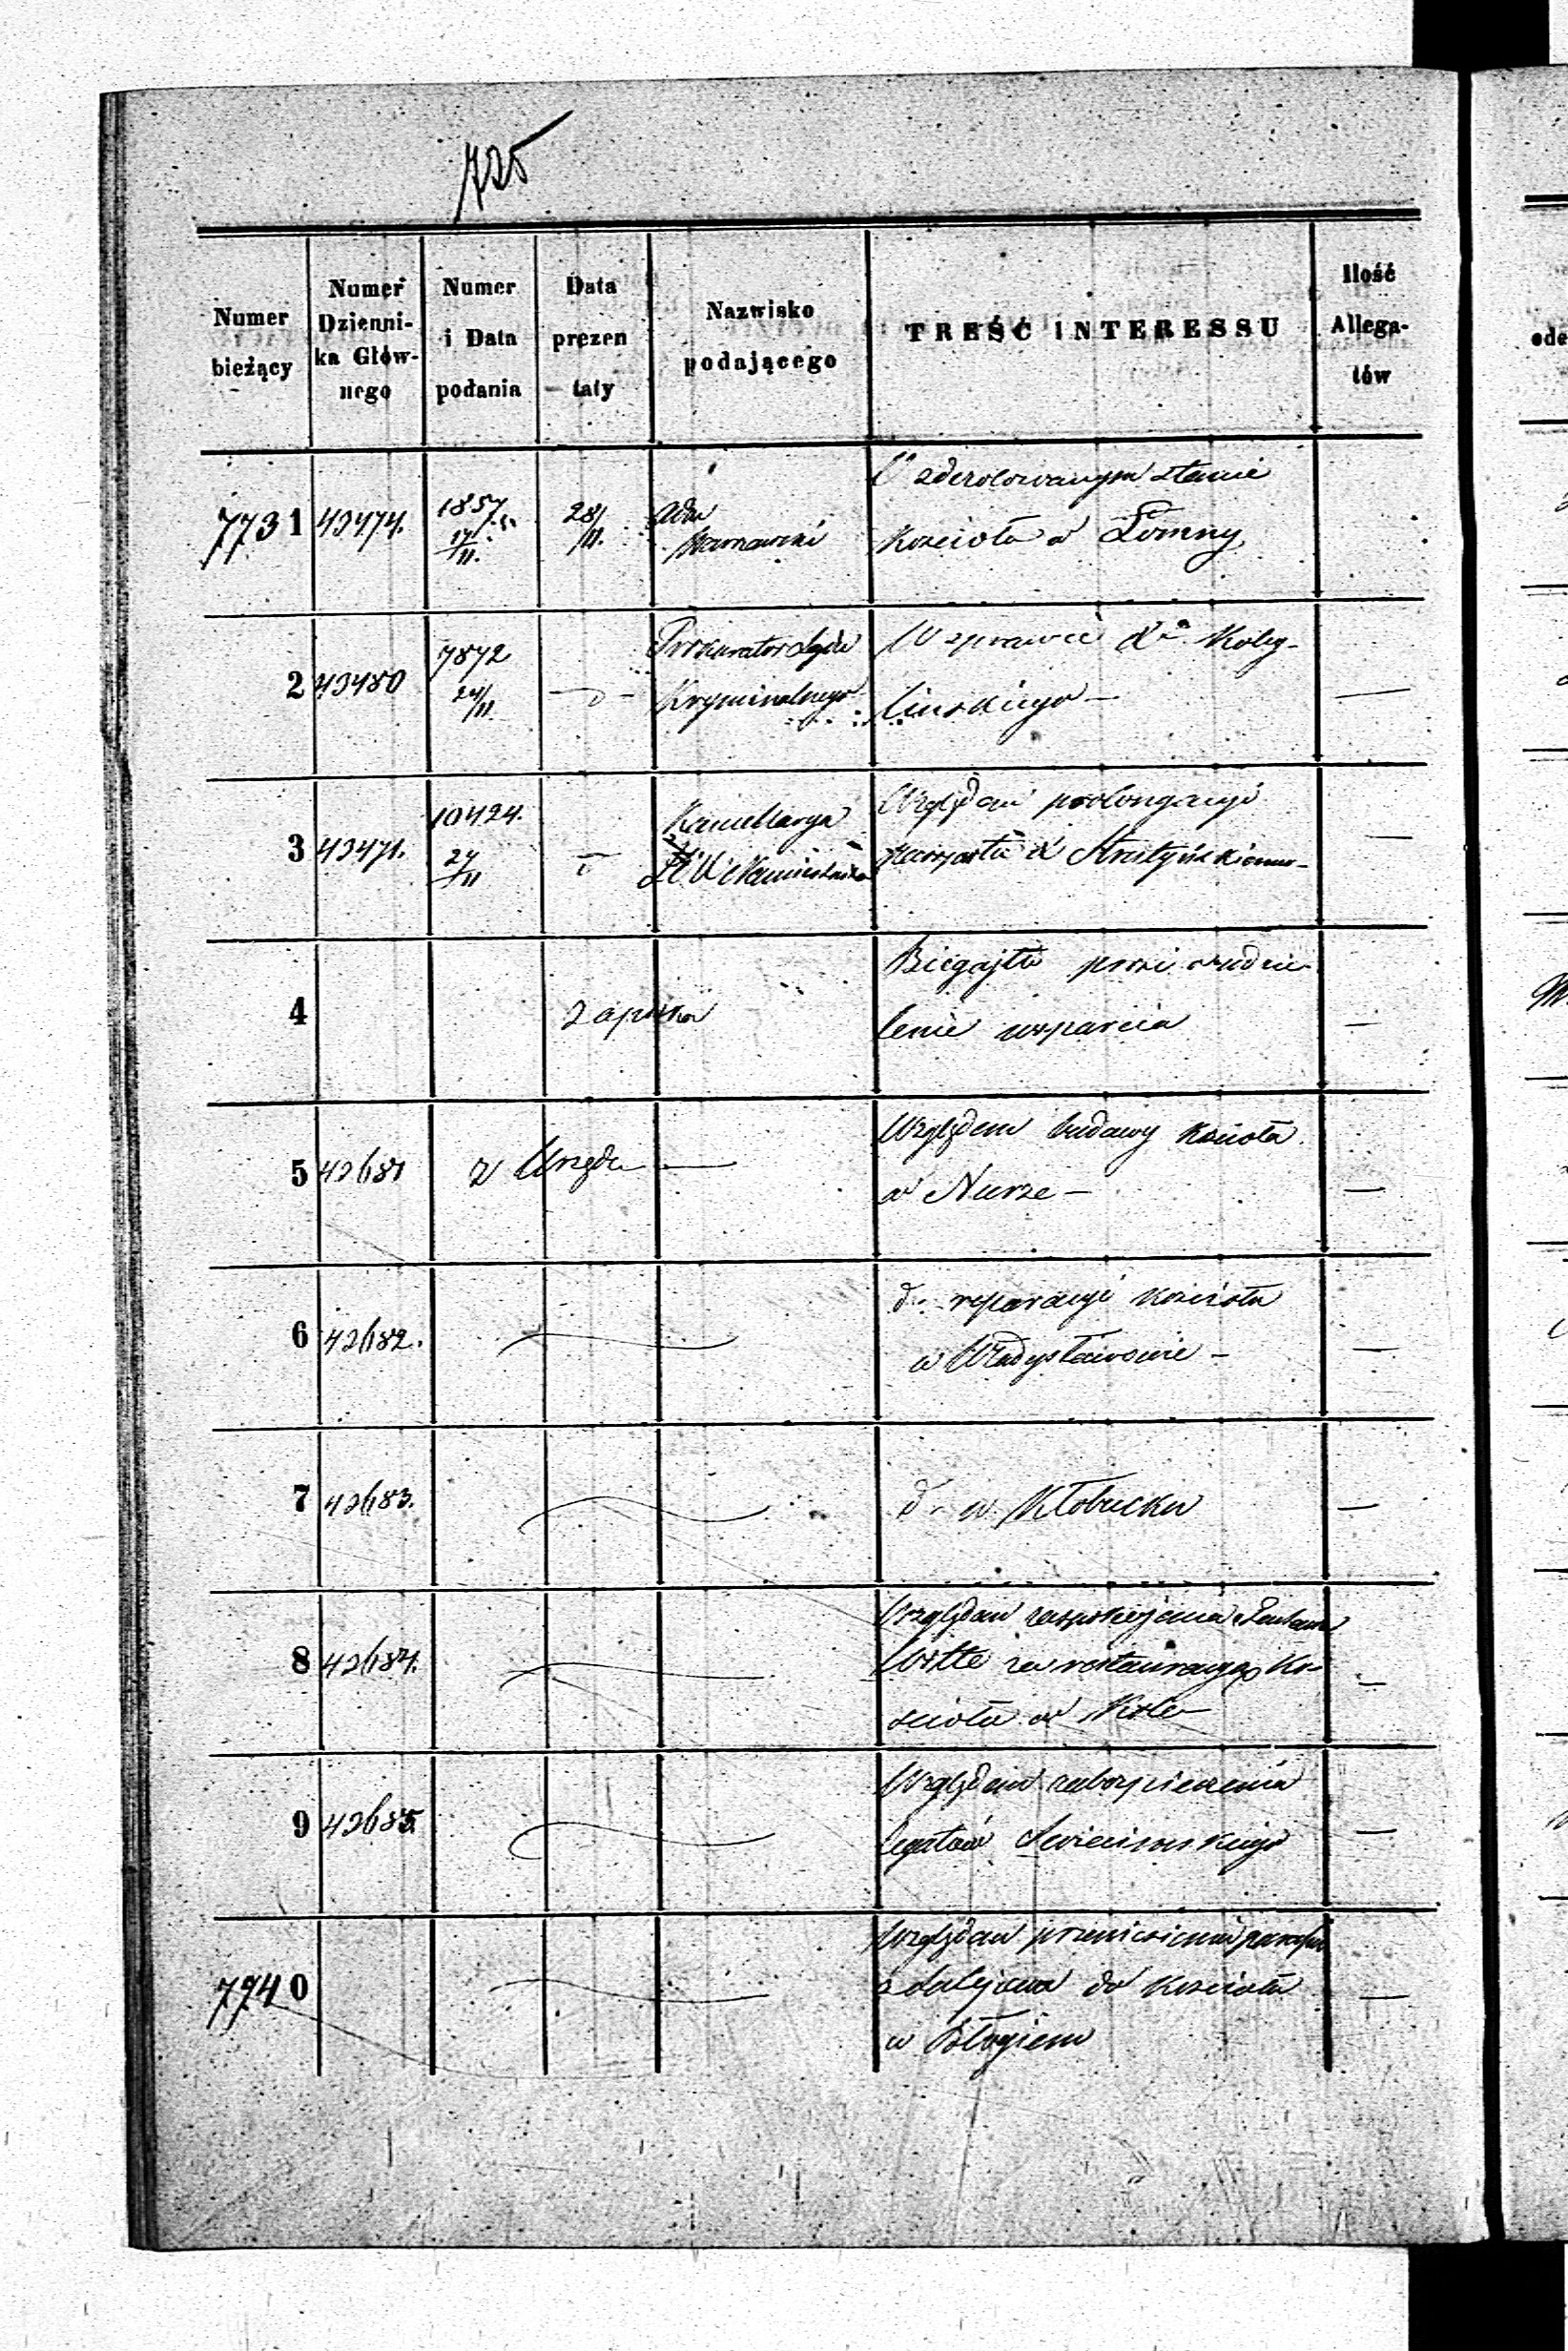 725
Numer bieżący
Numer Dzienni- ka Głów- nego
Numer i Data podania
Data prezen taty
Nazwisko podającego
TREŚĆ INTERESSU
Ilość Allega- tów
7731 43474. 1857 17/11. 28/11. Adm O zdezolowanym stanie
Warszawski kościoła w Łomny
2 43480 7872 24/11. — d — Prokurator Sądu W sprawie Xa Koleg-
Kryminalnego lińskiego — —
3 43471. 10424. 27/11 d Kancellarya Względem prolongacyi
Namiestnika paszportu X Strutyńskiemu —
4 zapiska Biegajło prosi o udzie-
lenie wsparcia —
5 42681 z Urzędu — Względem budowy kościoła
w Nurze — —
6 42682. d. reparacyi kościoła
w Władysławowie — —
7 42683. d. w Kłobucku —
8 42684. Względem zaspokojenia
Wolle za restauracyę Ko-
ścioła w Kole —
9 42685. Względem zabezpieczenia
legatów —
7940 Względem przeniesienia parafii
z Sulejowa do kościoła —
w Błogiem